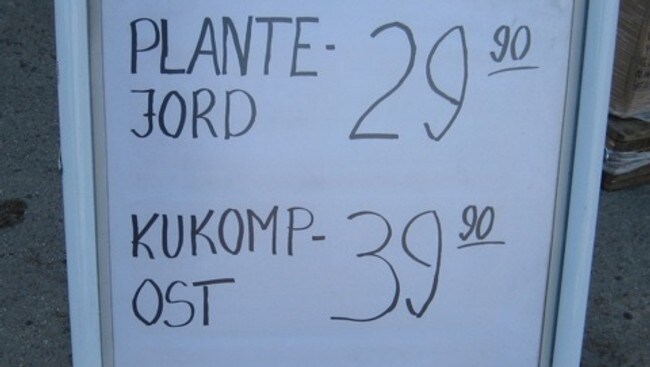 PLANTE- 29 90
JORD
KUKOMP- 39 90
OST